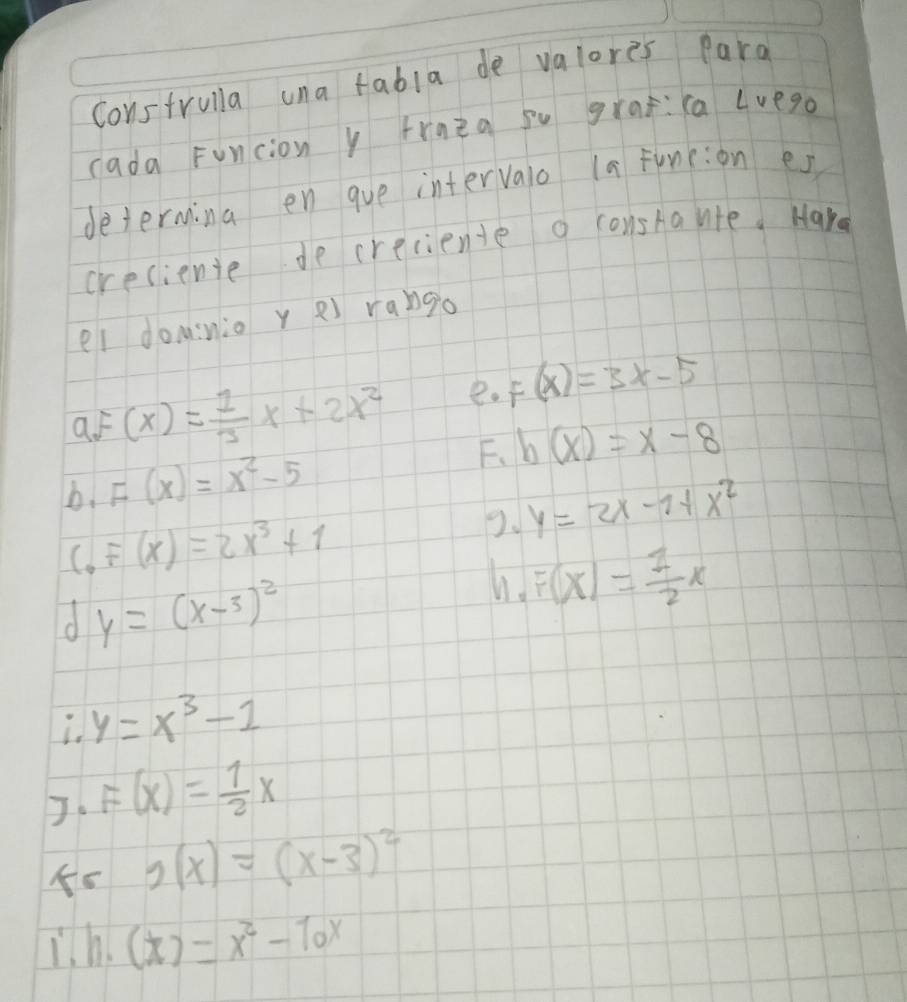 Construlla una tabla de valores Para
cada Funcion y traza su grafica Luego
determina en que intervalo la Funcion es
creciente de creciente o constante. Hara
el dominio y el rango
a. F(x) = 1/3 x + 2x²
b. F(x) = x² - 5
c. F(x) = 2x³ + 1
d y = (x-3)²
e. F(x) = 3x - 5
F. h(x) = x - 8
g. y = 2x - 1 + x²
h. F(x) = 1/2 x
i. y = x³ - 1
J. F(x) = 1/2 x
K. g(x) = (x-3)²
l. h. (x) = x² - 10x